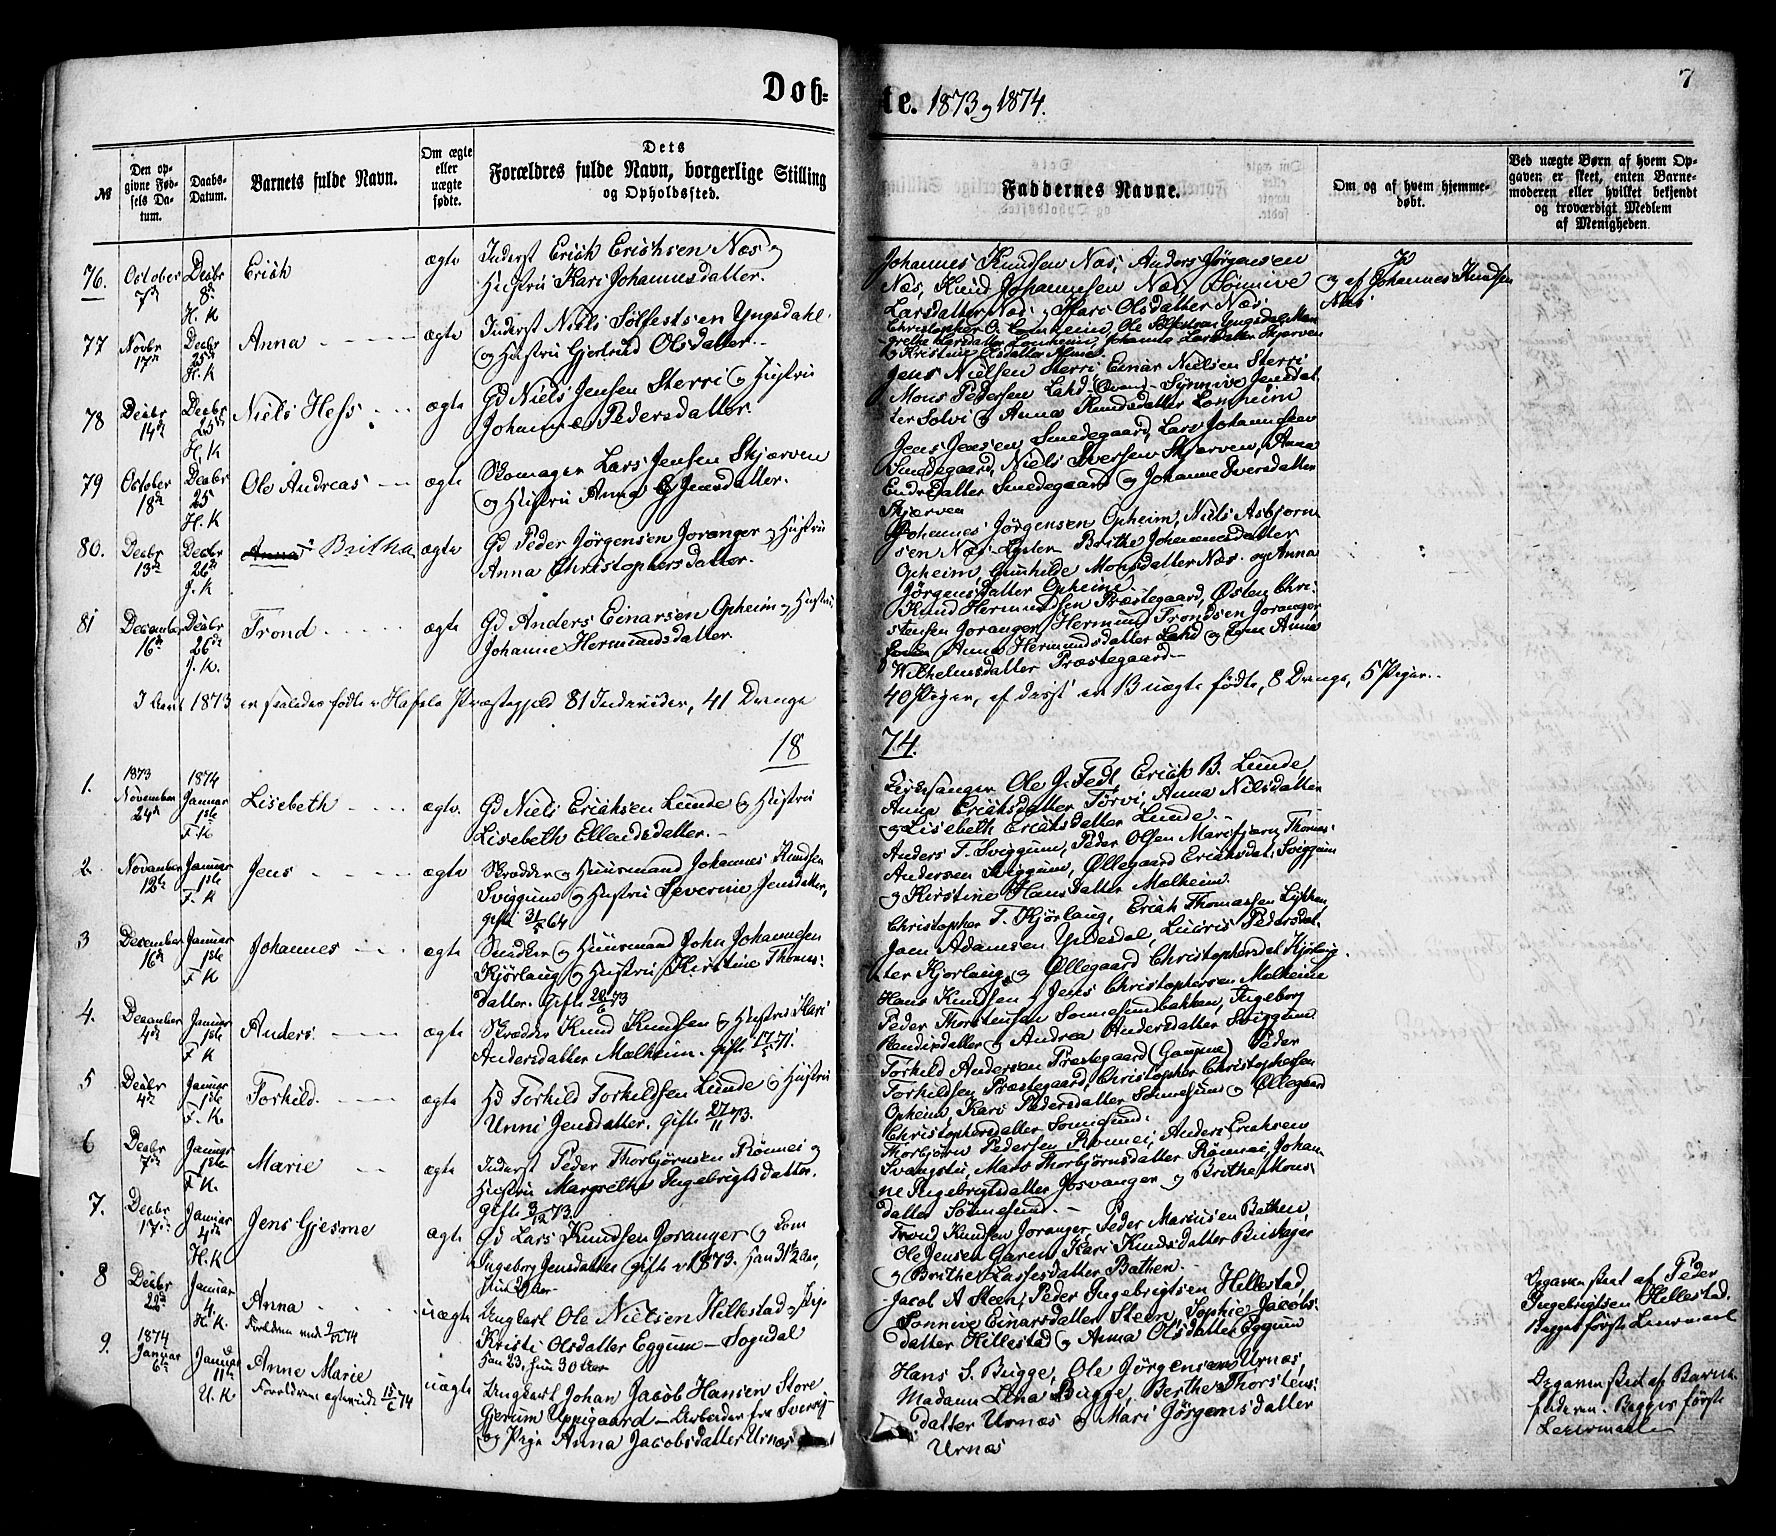 Døb=
te. 1873 og 1874.
7
№
Den op=
givne Fød=
sels Da=
tum.
Daabs=
Datum.
Barnets fulde Navn.
Om ægte
eller
uægte
fødte.
Dets
Forældres fulde Navn, borgerlige Stilling
og Opholdssted.
Faddernes Navne.
Om og af hvem hjemme=
døbt.
Ved uægte Børn af hvem Op=
gaven er skeet, enten Barne=
moderen eller hvilket bekjendt
og troværdigt Medlem
af Menigheden.
76.
October
7de
Decbr
8de
H. K
Erich
ægte
Inderst Erich Erichsen Næs og
Hustru Kari Johannesdatter.
Johannes Knudsen Næs, Anders Jørgensen
Næs, Knud Johannesen Næs, Sønnive
Larsdatter Næs og Kari Olsdatter Næs
og af Johannes Knudsen
Næs
77
Novbr
17de
Decbr
25de
H. K
Anna
ægte
Inderst Niels Sølfestsen Yngsdahl
og Hustru Gjertrud Olsdatter.
Christopher O. Lomheim, Ole Sølfestsen Yngsdal, Mar
grethe Larsdatter Lomheim, Johanne Larsdatter Skjerven
og Kristine Olsdatter Alme
78
Decbr
14de
Decbr
25de
H. K
Niels Hess
ægte
Gd Niels Jensen Sterri og Hustru
Johanne Pedersdatter
Jens Nielsen Sterri, Einar Nielsen Sterri
Mons Pedersen Lahd, Synnive Jensdat
ter Solvi og Anna Knudsdatter Lomheim
79
October
18de
Decbr
25
H. K
Ole Andreas
ægte
Skomager Lars Jensen Skjerven
og Hustru Anna Jensdatter.
Jens Jensen Smedegaard, Lars Johannesen
Smedegaard, Niels Iversen Skjerven, Anna
Endredatter Smedegaard og Johanne Iversdatter
Skjerven
80.
Decbr
13de
Decbr
26de
J. K
Anna Britha
ægte
Gd Peder Jørgensen Joranger og Hustru
Anna Christophersdatter.
Johannes Jørgensen Opheim, Niels Asbjørn
sen Næs, Brithe Johannesdatter
Opheim, Gunhilde Monsdatter Næs og Anna
Jørgensdatter Opheim
81
December
16de
Decbr
26de
J. K.
Trond
ægte
Gd Anders Einarsen Opheim og Hustru
Johanne Hermundsdatter
Knud Hermundsen Præstegaard, Østen Chri=
stensen Joranger, Hermund Trondsen Joranger
Anna Hermundsdatter Lahd og Anna
Wilhelmsdatter Præstegaard
I Aaret 1873 er saaledes fødte i Hafslo Præstegjeld 81 Individer, 41 Drenge
40 Piger, af disse er 13 uægte fødte, 8 Drenge, 5 Piger.
18
74.
1.
1873
November
24de
1874
Januar
1ste
F. K
Lisebeth
ægte.
Gd Niels Erichsen Lunde og Hustru
Lisebeth Ellendsdatter.
Kirkesanger Ole J. Fedt, Erich B. Lunde,
Anna Erichsdatter Tørvi, Anna Nilsdatter
og Lisebeth Erichsdatter Lunde.
2
November
12te
Januar
1ste
F. K
Jens
ægte
Skrædder og Huusmand Johannes Knudsen
Sviggum og Hustru Severine Jensdatter,
gifte 31/5 64
Anders T. Sviggum, Peder Olsen Marifjæren, Thomas
Andersen Sviggum, Øllegaard Erichsdat. Sviggum
og Kirstine Hansdatter Molheim.
3
December
16de
Januar
1ste
F. K
Johannes
ægte
Snedker og Huusmand John Johannesen
Kjørlaug og Hustru Kirstine Thomas=
datter. Gifte 20/6 73
Christopher T. Kjørlaug, Erich Thomassen Lykken,
Jam Adamsen Yndesdal, Lucris Pedersdat
ter Kjørlaug og Øllegaard Christophersdat Kjørlaug
4.
December
4de
Januar
1ste
F. K
Anders.
ægte
Skrædder Knud Knudsen og Hustru Kari
Andersdatter Molheim. Gifte 17/5 71.
Hans Knudsen og Jens Christophersen Molheim
Peder Thorstensen Sonnesundbakken, Ingeborg
og Andrea Andersdatter Sviggum
5
Decbr
4de
Januar
1ste
F. K.
Torkild.
ægte
Hd Torkild Torkildsen Lunde og Hustru
Unni Jensdatter. Gifte 27/11 73.
Torkild Andersen Præstegaard (Gaupne) Peder
Torkildsen Præstegaard, Christopher Christophersen
Opheim, Kari Pedersdatter Sonnesund og Øllegaard
Christophersdatter Sonnesund.
6
Decbr
7de
Januar
1ste
F. K.
Marie
ægte
Inderst Peder Thorbjørnsen Rønnei og
Hustru Margrethe Ingebrigtsdatter.
Gifte 9/12 73.
Thorbjørn Pedersen Rønnei, Anders Erichsen
Svangstu, Mari Thorbjørnsdatter Rønnei, Johan
ne Ingebrigtsdatter Josvanger og Brithe Mons
datter Sonnesund.
7.
Decbr
17de
Januar
4de
H. K
Jens Gjesme
ægte
Gd Lars Knudsen Joranger og Kone
Ingeborg Jensdatter gifte i 1873. Han 31½ Aar,
Hun 29 Aar
Trond Knudsen Joranger, Peder Mariusen Bathen,
Ole Jensen Garen, Kari Knudsdatter Beiskajer
og Brithe Lassesdatter Bathen.
8
Decbr
22de
Januar
4.
H. K.
Anna
uægte
Ungkarl Ole Nielsen Hillestad og Pige
Kristi Olsdatter Eggum - Sogndal
Han 23, Hun 30 Aar
Jacob A Steen, Peder Ingebrigtsen Hillestad,
Sønnive Einarsdatter Steen, Sophie Jacobs=
datter Hillestad og Anna Olsdatter Eggum
Opgaven skeet af Peder
Ingebrigtsen Hillestad.
Begges første Leiermaal
9.
1874
Januar
6te
Januar
11te
U. K
Anne Marie
uægte
Ungkarl Johan Jacob Hansen Store
Gjerum Uppigaard - Arbeider fra Sverrig
og Pige Anna Jacobsdatter Urnæs
Hans S. Bugge, Ole Jørgensen Urnæs,
Madame Lina Bugge, Berthe Thorstens=
datter Urnæs og Mari Jørgensdatter
Urnæs
Opgaven skeet af Barne
faderen. Begges første
Leiermaal